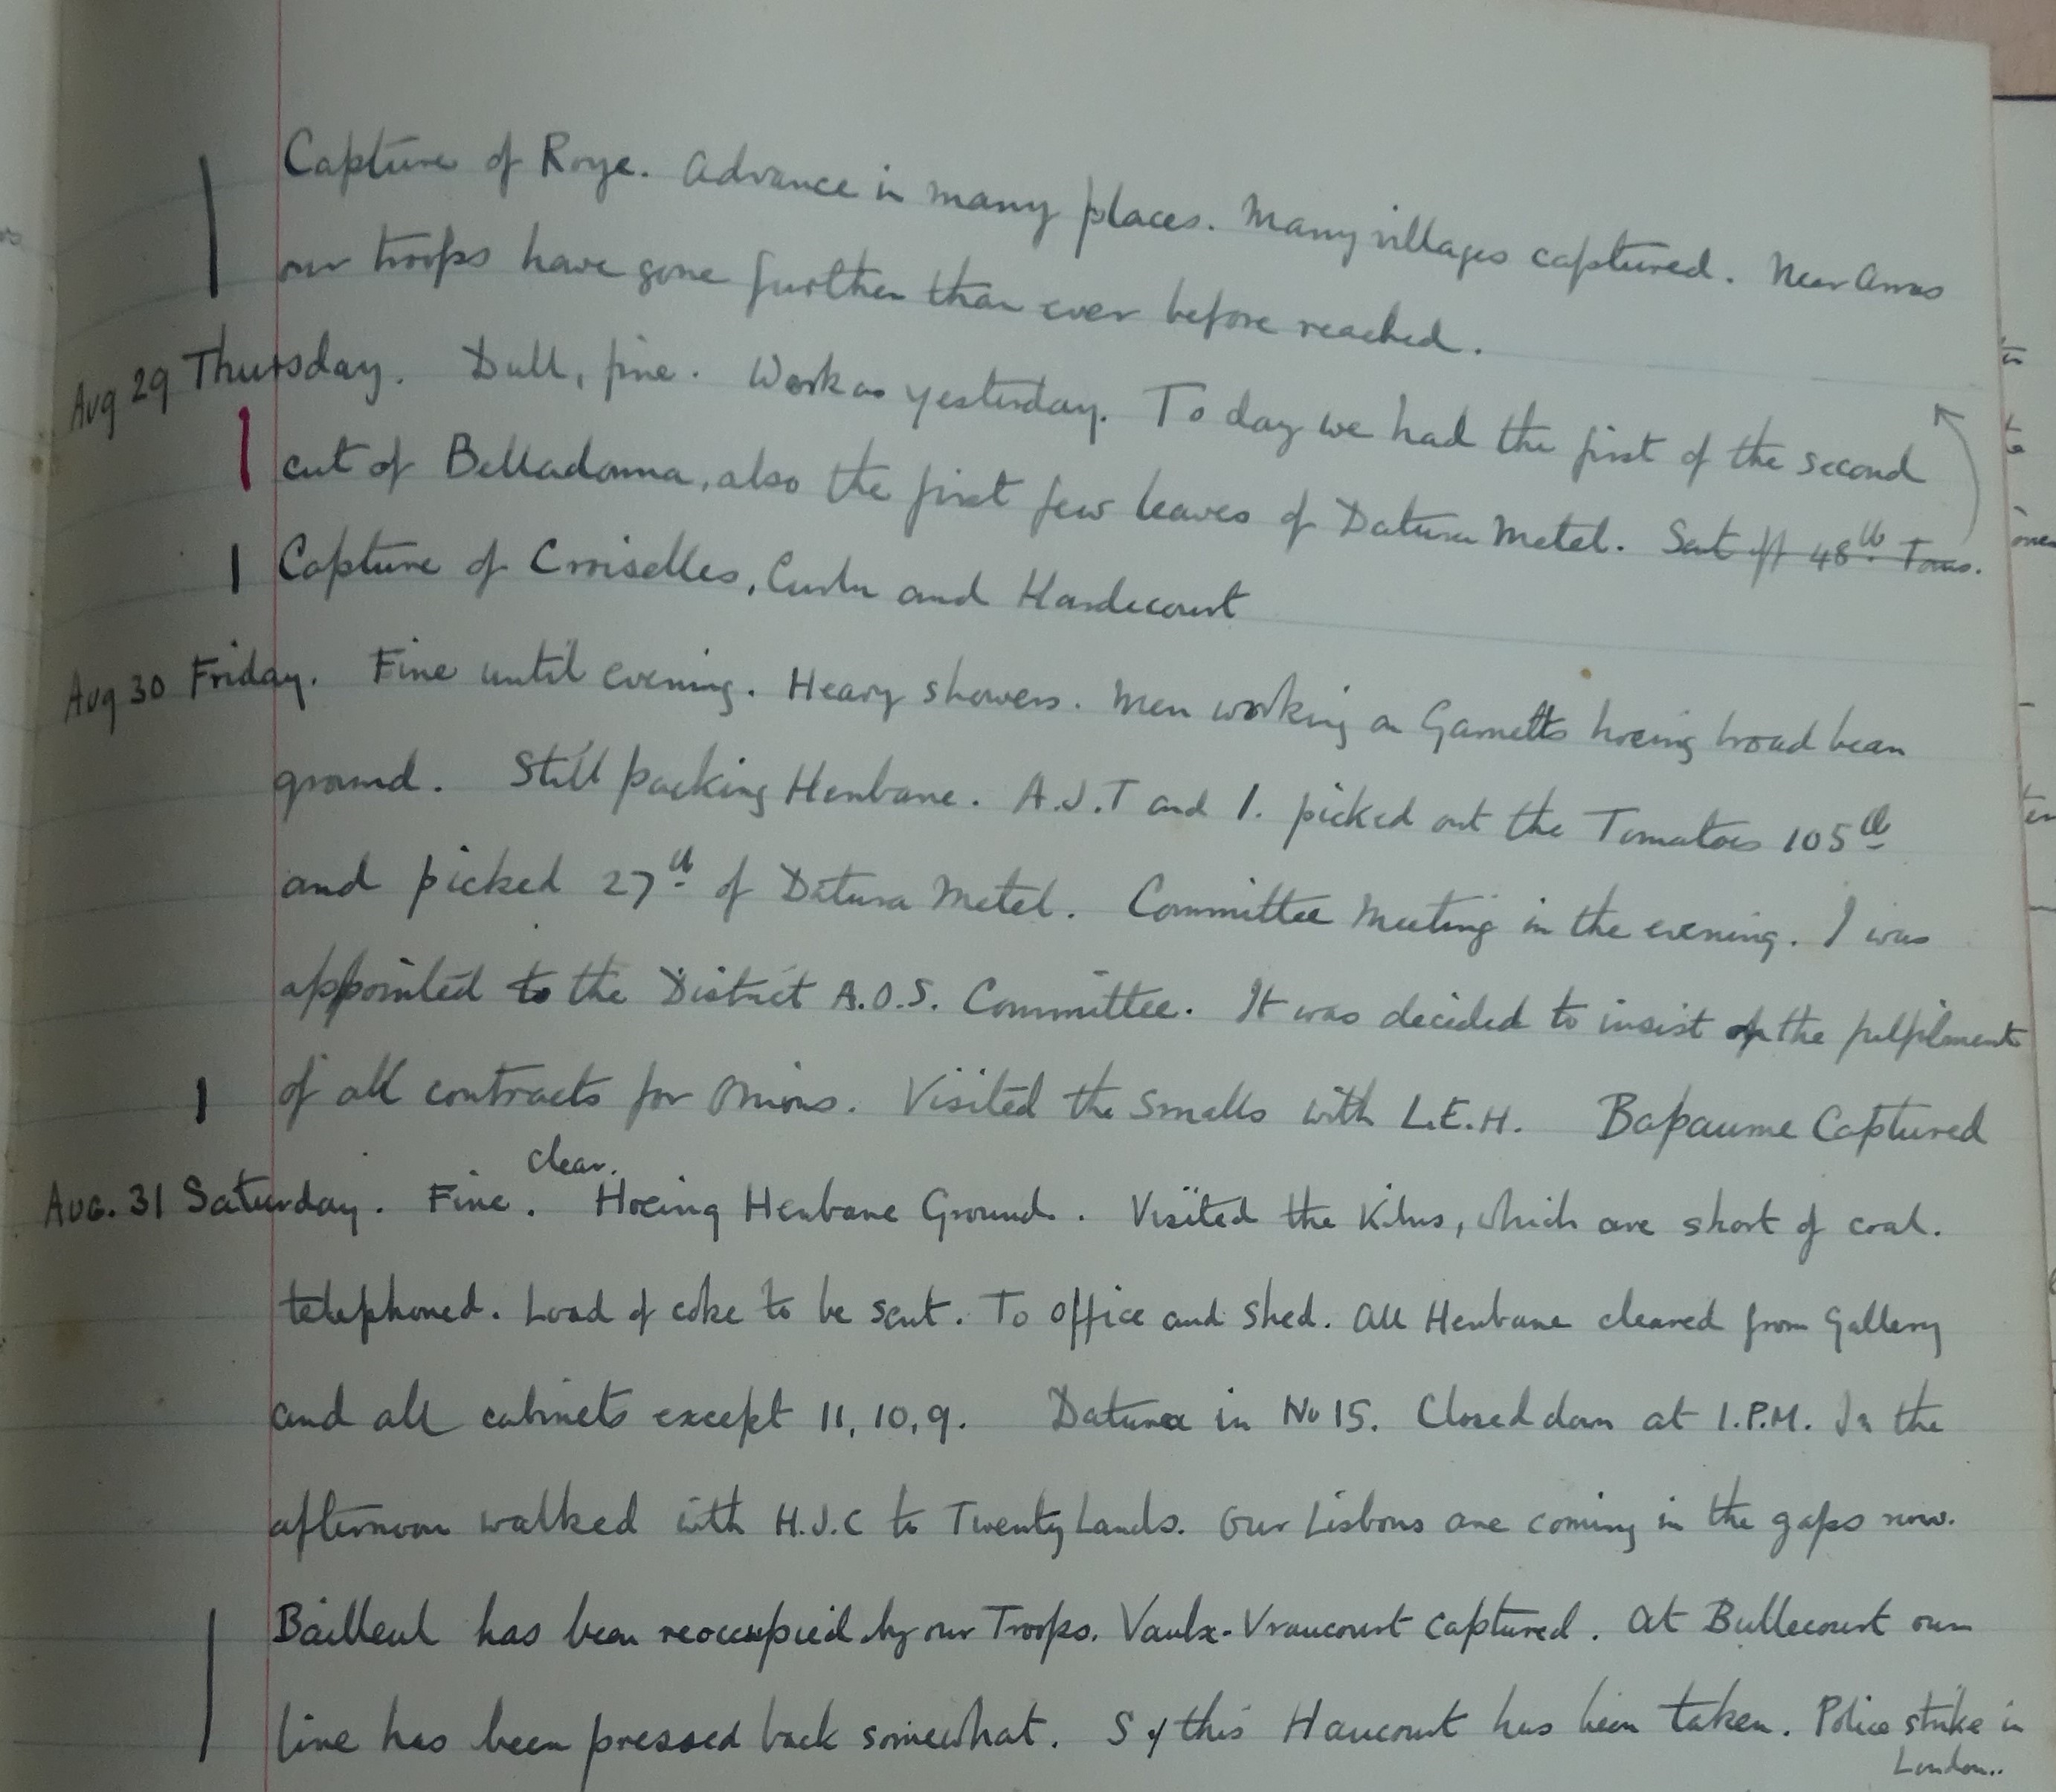 Capture of Roye. Advance in many places. Many villages captured. Near Arras
our troops have gone further than ever before reached.
Aug 29 Thursday. Dull, fine. Work as yesterday. To day we had the first of the second
cut of Belladonna, also the first few leaves of Datura Metel. Sent off 48 lb Toms.
Capture of Croiselles, Curlu and Hardecourt
Aug 30 Friday. Fine until evening. Heavy showers. Men working on Garnetts hoeing broad bean
ground. Still packing Henbane. A.J.T and I. picked out the Tomatoes 105 lb
and picked 27 lb of Datura Metel. Committee Meeting in the evening. I was
appointed to the District A.O.S. Committee. It was decided to insist on the fulfilment
of all contracts for Onions. Visited the Smalls with L.E.H. Bapaume Captured
clear.
Aug. 31 Saturday. Fine. Hoeing Henbane Ground. Visited the Kilns, which are short of coal.
telephoned. Load of coke to be sent. To office and shed. All Henbane cleared from Gallery
and all cabinets except 11, 10, 9. Datura in No 15. Closed down at 1.P.M. In the
afternoon walked with H.J.C to Twenty Lands. Our Lisbons are coming in the gaps now.
Bailleul has been reoccupied by our Troops. Vaulx-Vraucourt captured. At Bullecourt our
line has been pressed back somewhat. S of this Haucourt has been taken. Police strike in
London..